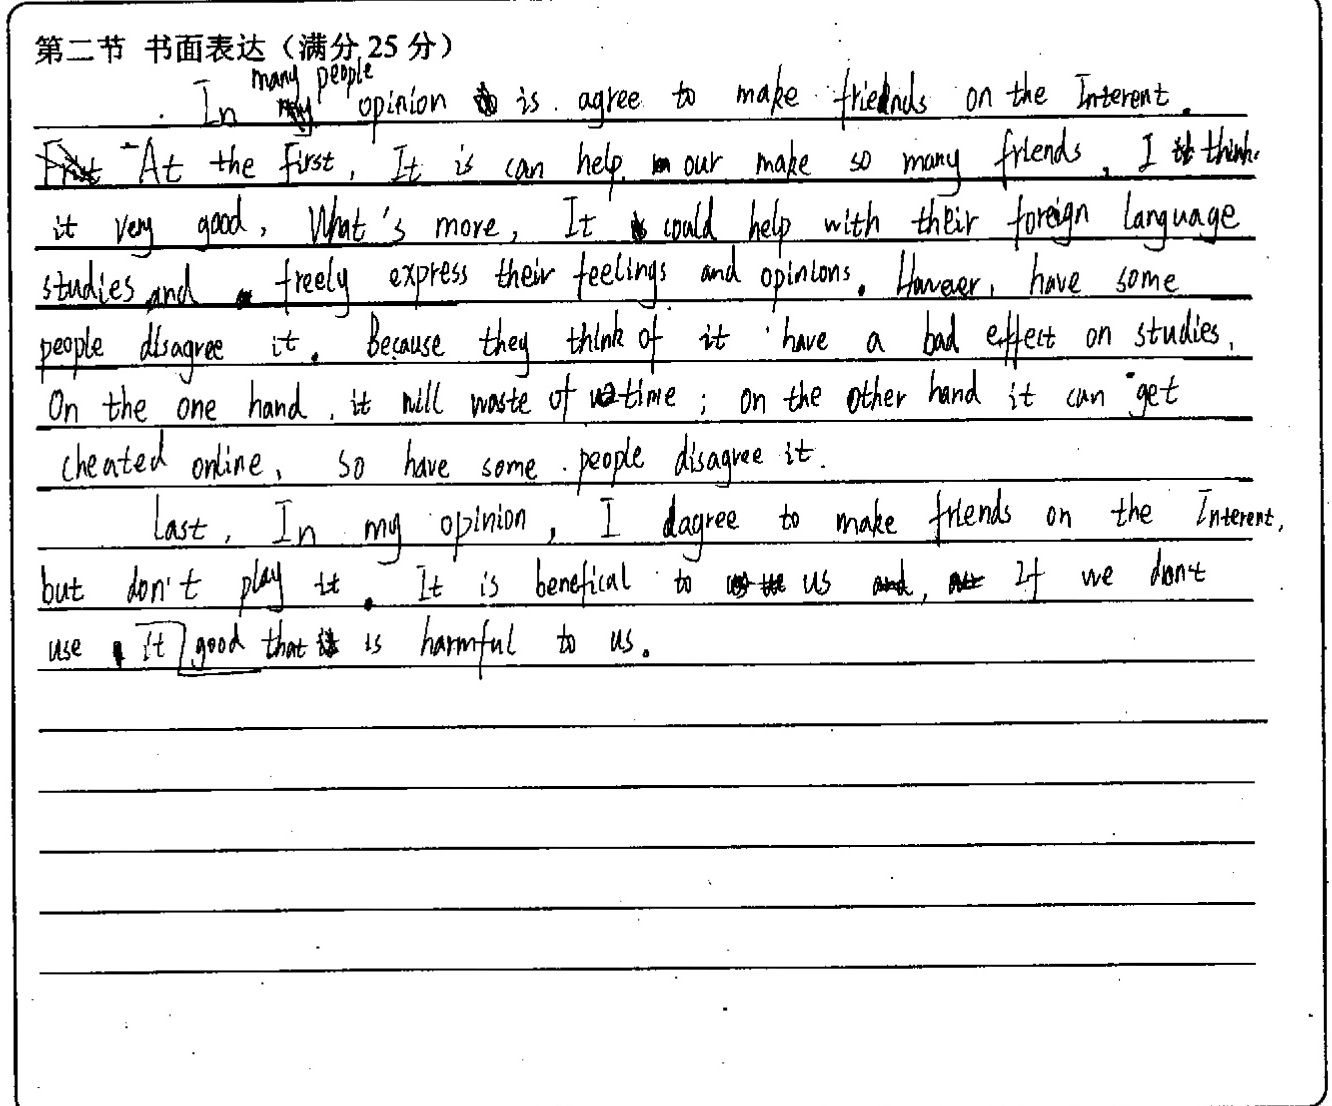 第二节 书面表达（满分 25 分）
many people
In opinion is agree to make friends on the Interent.
At the first, It is can help our make so many friends, I think
it very good, What's more, It could help with their foreign language
studies and freely express their feelings and opinions. However, have some
people disagree it. Because they think of it have a bad effect on studies,
On the one hand, it will waste of time; on the other hand it can get
cheated online, so have some people disagree it.
Last, In my opinion, I dagree to make friends on the Interent,
but don't play it. It is benefical to us, If we don't
use it good that is harmful to us.